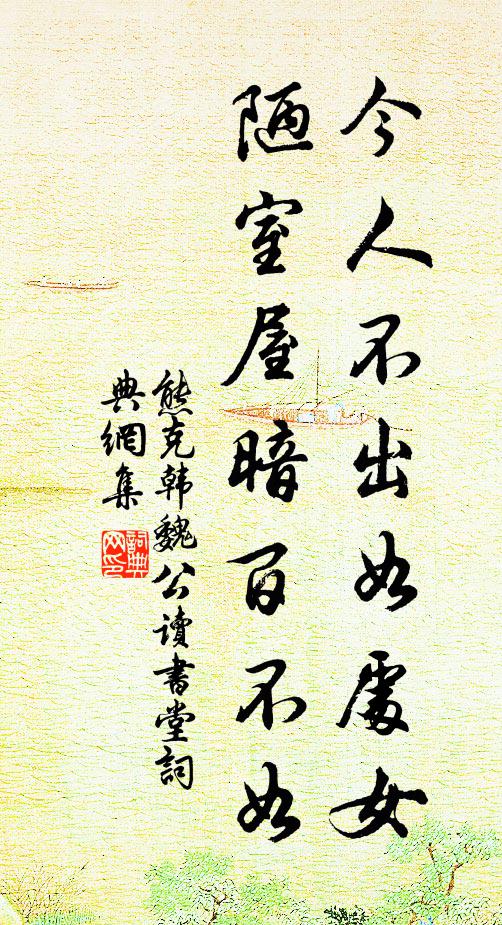 今人不出如處女
陋室屋暗百不如
熊克韓魏公讀書堂詞
典網集
詞典
网印